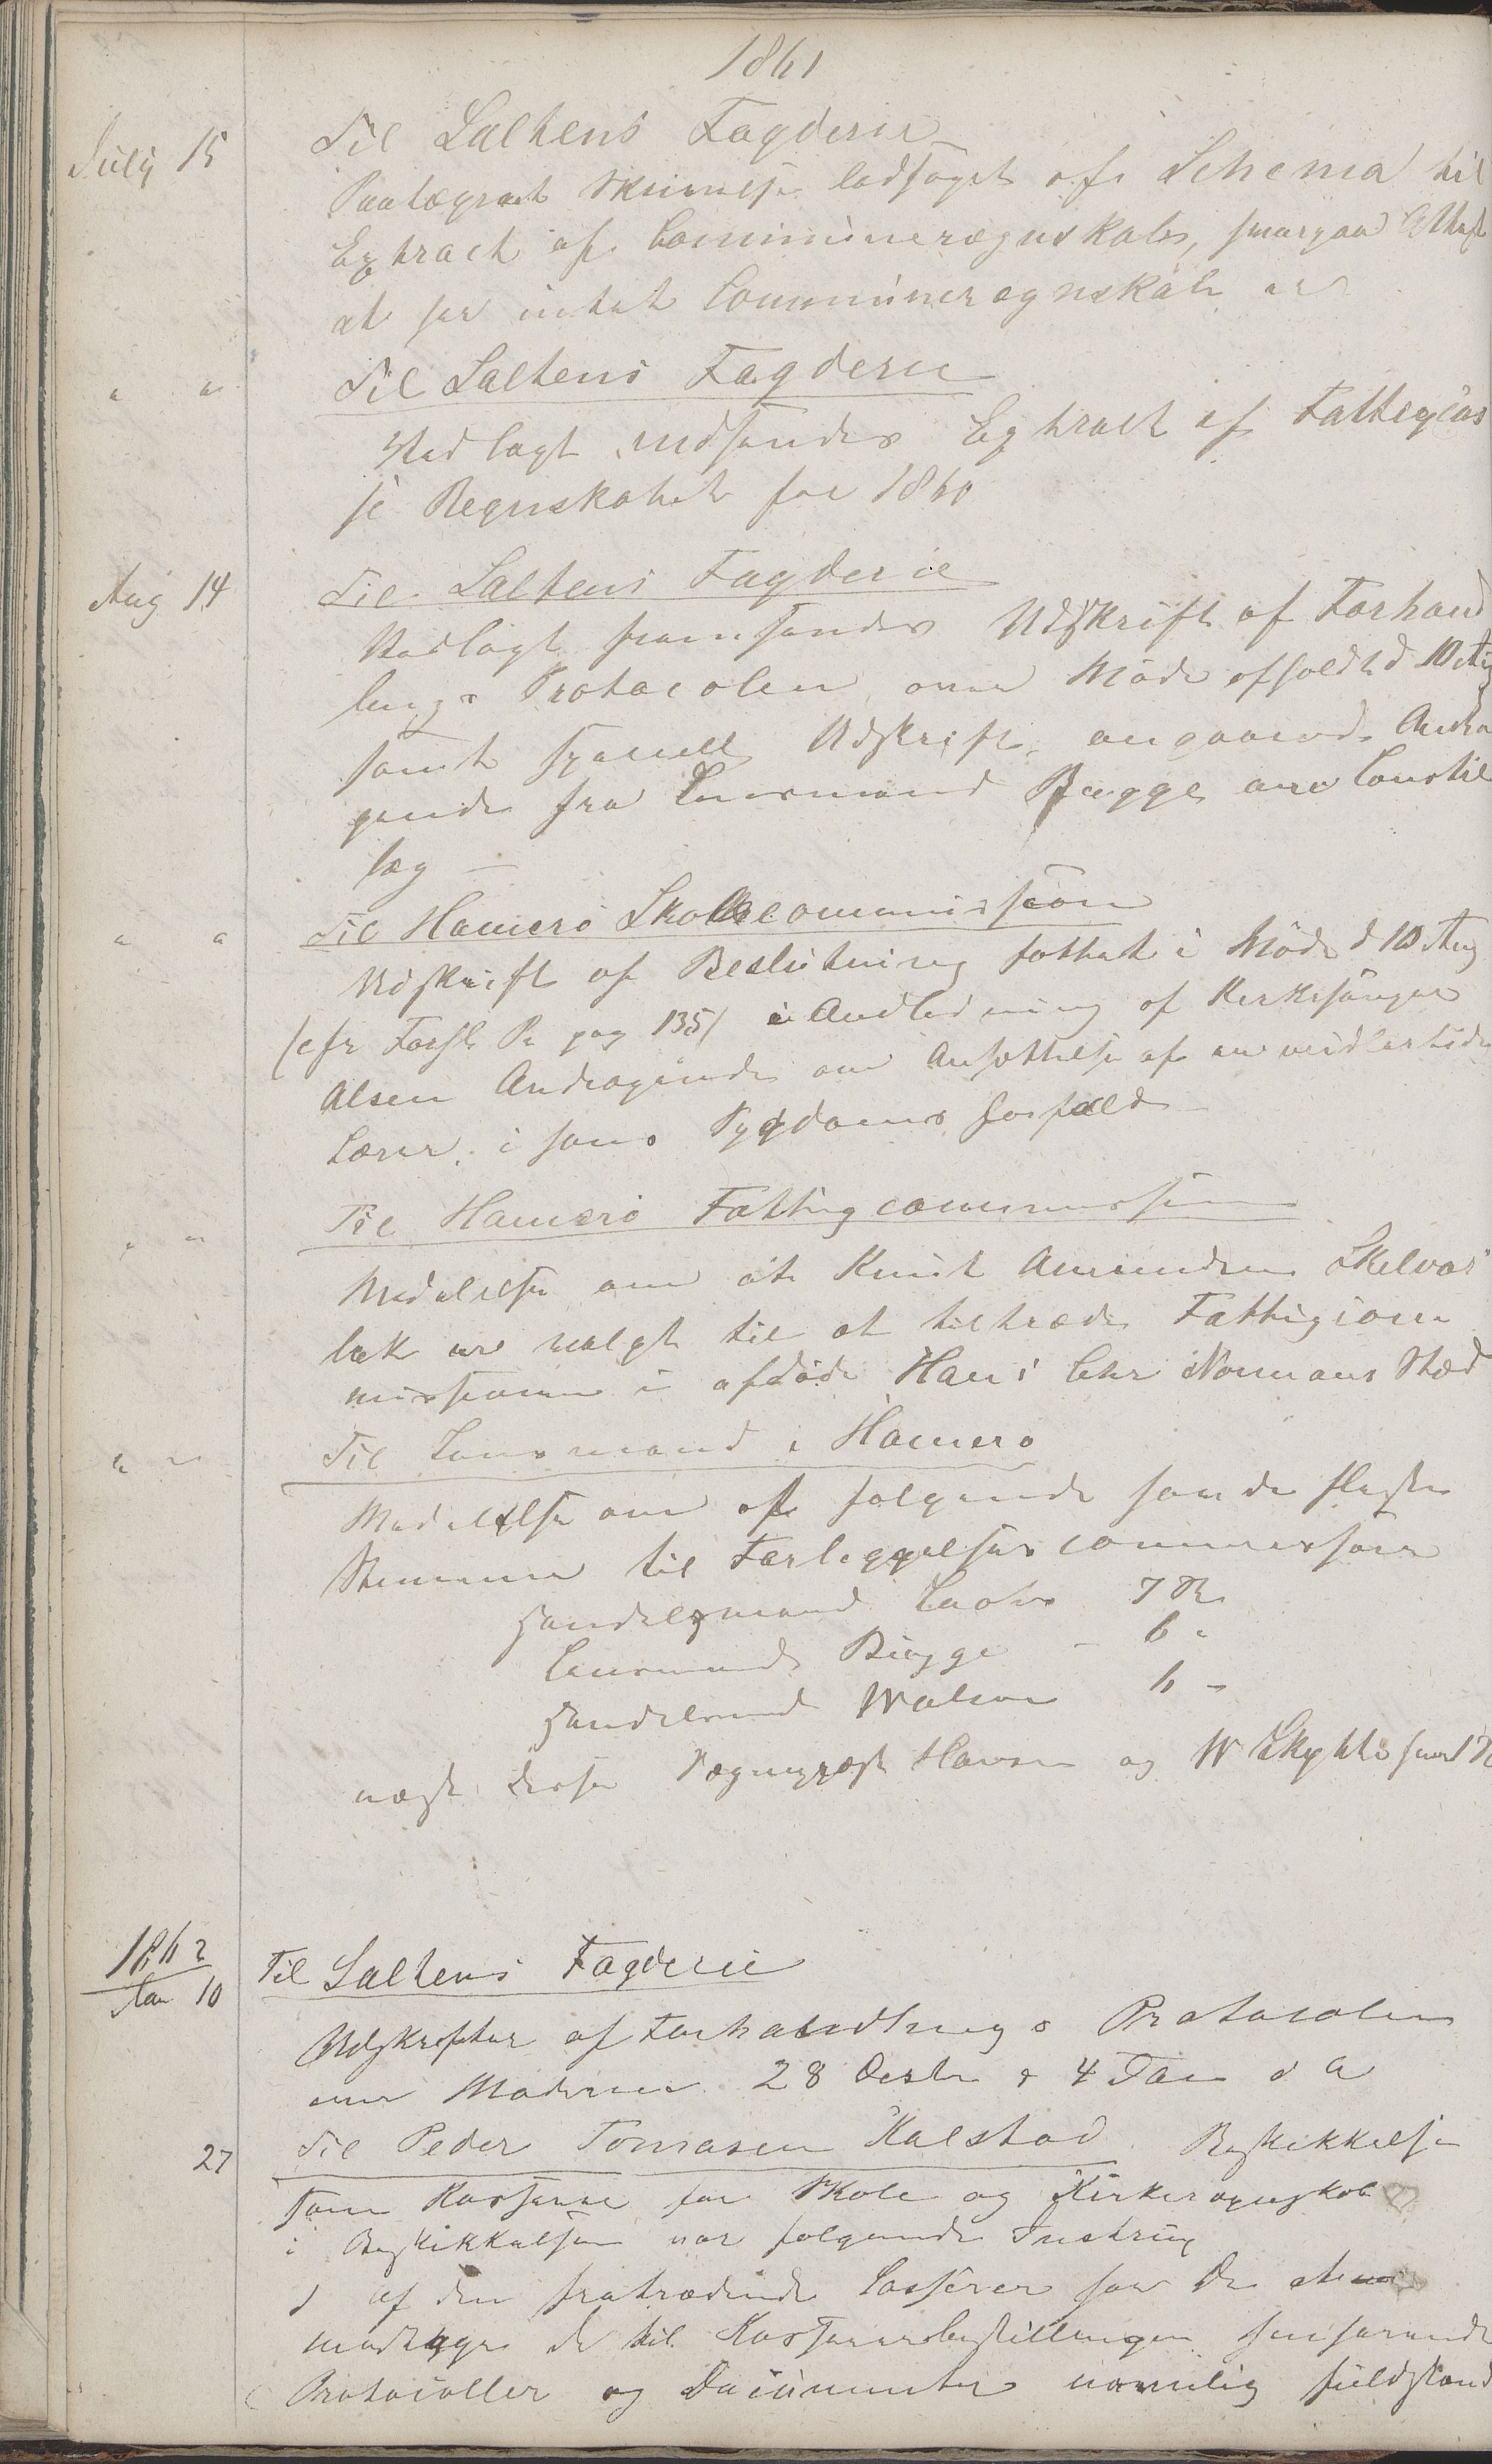 1861
July 15 Til Saltens Fogderie
Paategnet Skrivelse ledsaget af Schema til
Extract af Communeregnskab, paategnet Attest
at her intet Communeregnskab er
" " Til Saltens Fogderie
Vedlagt indsendes Extract af Fattigcas
se Regnskabet for 1860
Aug 14 Til Saltens Fogderie
Vedlagt fremsendes Udskrift af Forhand
lings Protocolen om Møde afholdt d 10 Aug
samt speciell Udskrift angaaende Andra
gende fra Lensmand Bugge om
læg —
" " Til Hamerø Skolecommission
Udskrift af Beslutning fattet i Møde d 10 Aug
(cfr Forh Pr pag 135) i Anledning af Kirkesanger
Olsen Andragende om Ansættelse af en midlertidig
Lærer i hans Sygdoms forfald
" " Til Hamerø Fattigcommission
Meddelelse om at Knut Amundsen Skelvas
bak er valgt til at tiltræde Fattigcom
missionen i afdøde Hans Chr Normans Sted
" " Til Lensmand i Hamerø
Meddelelse om at følgende havde fleste
Stemmer til Forligelsescommissær
Handelsmand 7 St
Lensmand Bugge — 6 "
Handelsmd Walsøe 6 "
næst disse Hansen og
1862
Jan 10 Til Saltens Fogderie
Udskrifter af Forhandlings Protocolen
om Møderne 28 Decbr & 4 Jan d A
27 Til Peder Tomasen Kalstad Beskikkelse
som Kasserer for Skole og Kirkeregnskab
i Beskikkelsen var følgende Instrux
1 Af den fratrædende Casserer har De at
modtage de til Kassererbestillingen henhørende
Protocoller og Documenter navnlig fuldstænd